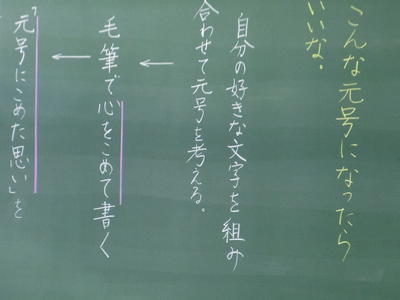 こんな元号になったら
いいな。
自分の好きな文字を組み
合わせて元号を考える。
←
毛筆で心をこめて書く
←
「元号にこめた思い」を